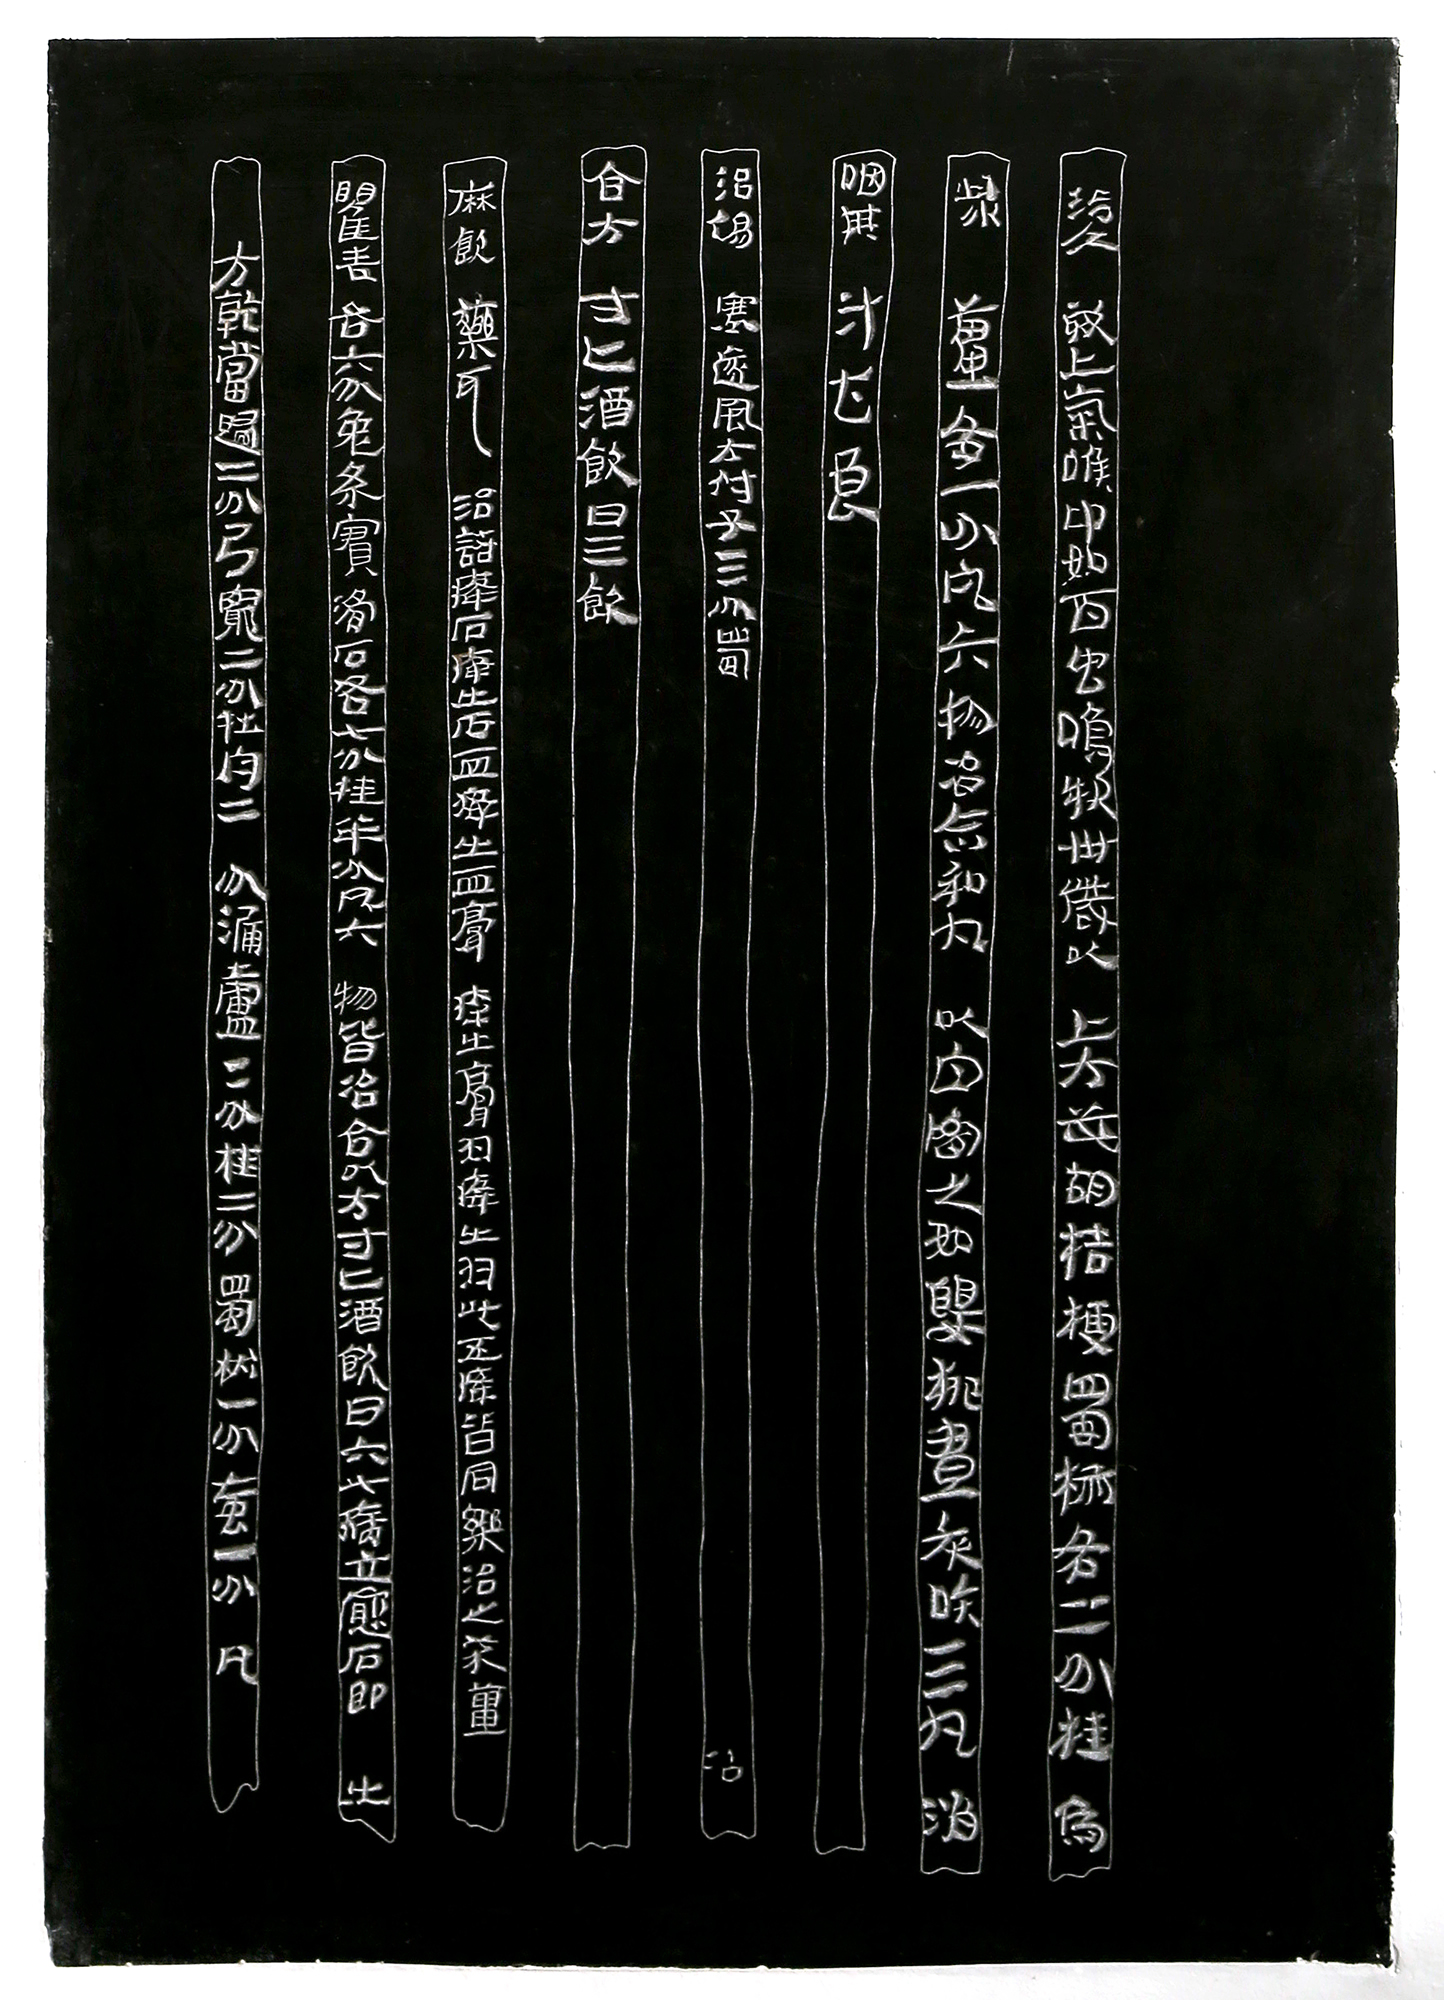 治久欬上氣喉中如百虫鳴狀卅歲以上方茈胡桔梗蜀椒各二分桂烏
喙薑各一分凡六物冶合和丸以白密大如嬰桃晝夜吞三丸消
咽其汁甚良
治傷寒遂風方付子三分蜀 治
合方寸匕酒飲日三飲
麻飲藥耳治諸癃石癃出石血癃出血膏癃出膏泔癃出泔此五癃皆同藥治之朮薑
瞿麥各六分兔糸實滑石各七分桂半分凡六物皆冶合以方寸匕酒飲日六七病立愈石即出
方乾當歸二分弓窮二分牡丹二分漏盧二分桂二分蜀椒一分虻一分凡